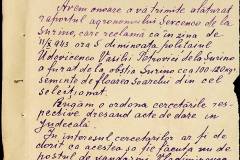 Avem onoare a va trimite alaturat
raportul agronomului Sevcenco de la
Surine, care reclamă ca in zina de
11/X 943 ora 5 dimineața politaiul
Udovicenco Vasili Petrovici dela Surino
a furat de la obștia Surino cca 100-120 kgr.
Seminte de floarea soarelui din cel
selectionat.
Rugăm a ordona cercetările res-
pective, dresand acte de dare in
judecată.
In interesul cercetărilor ar fi de
dorit ca acestea să fie facute nu de
postul de jandarmi